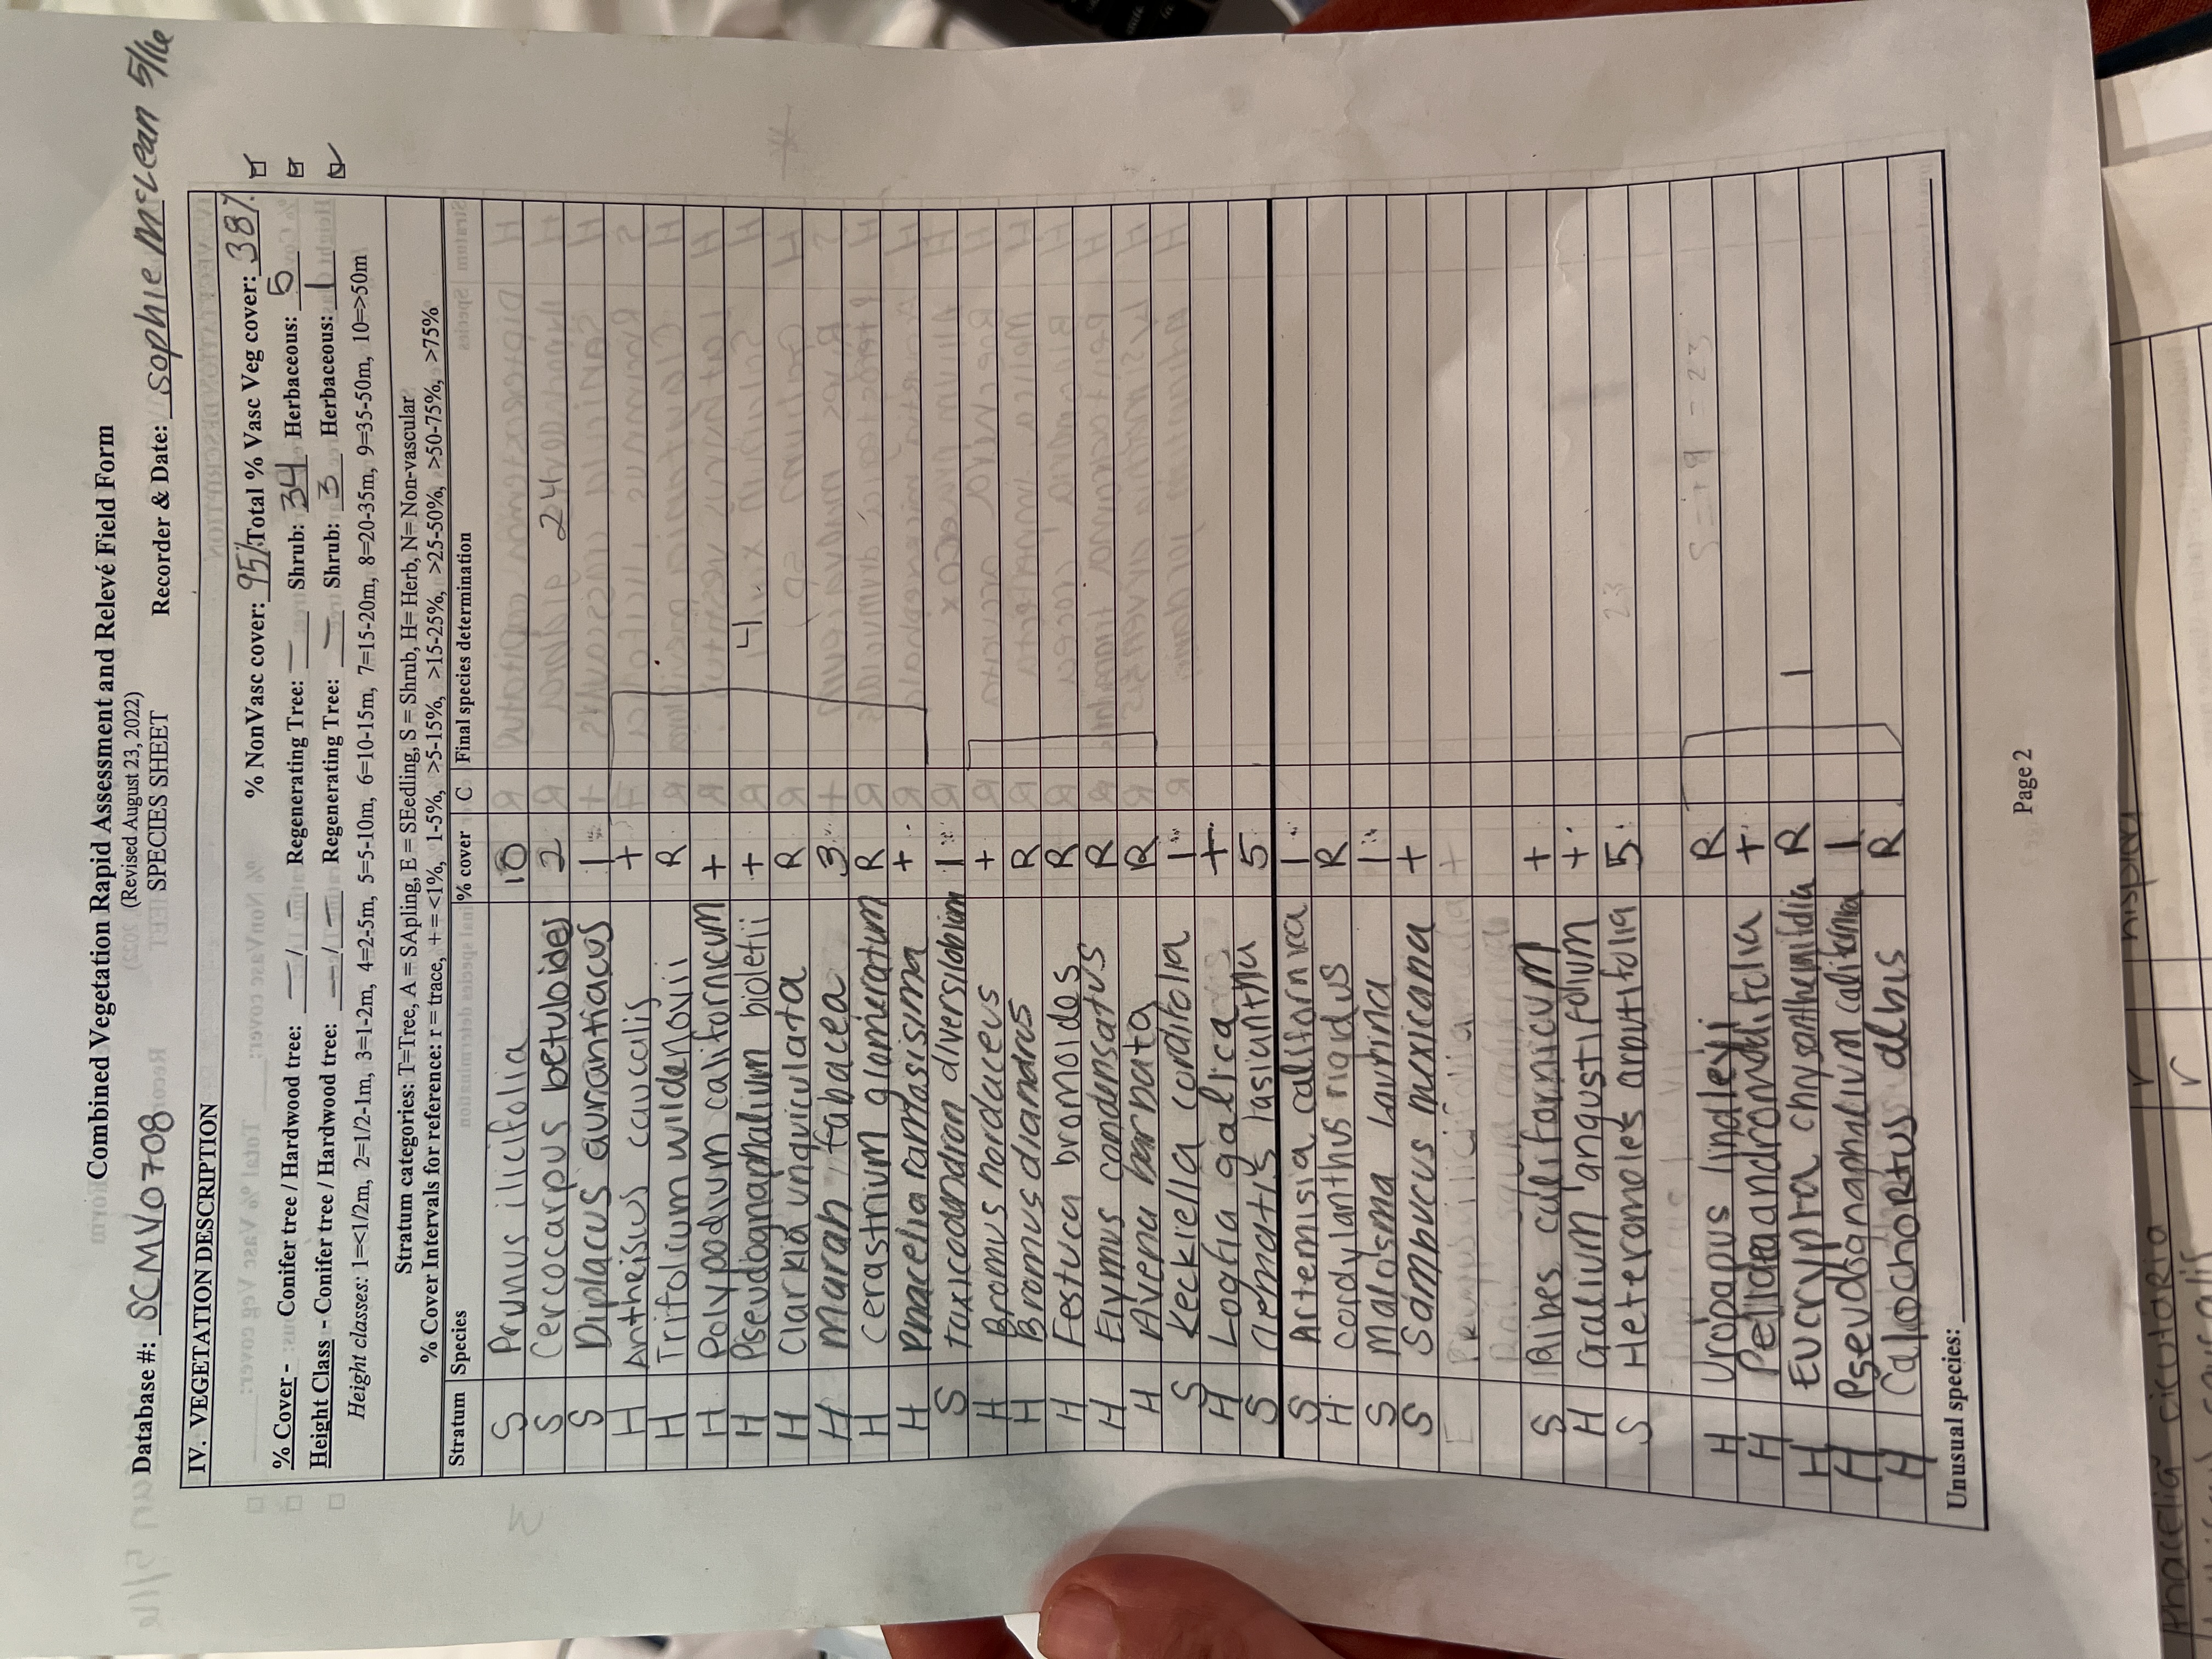 Combined Vegetation Rapid Assessment and Relevé Field Form
(Revised August 23, 2022)
Database #: SCMV0708 SPECIES SHEET Recorder & Date: Sophie McLean 5/16
IV. VEGETATION DESCRIPTION
% NonVasc cover: 95% Total % Vasc Veg cover: 38%
% Cover - Conifer tree / Hardwood tree: — / — Regenerating Tree: — Shrub: 34 Herbaceous: 5
Height Class - Conifer tree / Hardwood tree: — / — Regenerating Tree: — Shrub: 3 Herbaceous: 1
Height classes: 1=<1/2m, 2=1/2-1m, 3=1-2m, 4=2-5m, 5=5-10m, 6=10-15m, 7=15-20m, 8=20-35m, 9=35-50m, 10=>50m
Stratum categories: T=Tree, A = SApling, E = SEedling, S = Shrub, H= Herb, N= Non-vascular
% Cover Intervals for reference: r = trace, + = <1%, 1-5%, >5-15%, >15-25%, >25-50%, >50-75%, >75%
Stratum Species % cover C Final species determination
S Prunus ilicifolia 10
S Cercocarpus betuloides 2 24
S Diplacus aurantiacus 1
H Anthriscus caucalis +
H Trifolium wildenovii R
H Polypodium californicum +
H Pseudognaphalium bioletii + 4
H Clarkia unguiculata R
H Marah fabacea 3
H cerastrium glomeratum R
H Phacelia ramosissima +
S toxicodendron diversilobium 1
H Bromus hordaceus +
H Bromus diandrus R
H Festuca bromoides R
H Elymus condensatus R
H Avena barbata R
S Keckiella cordifolia 1
H Logfia gallica +
S Clematis lasiantha 5
S Artemisia californica 1
H cordylanthus rigidus R
S Malosma laurina 1
S Sambucus mexicana +
S Ribes californicum +
H Galium angustifolium +
S Heteromeles arbutifolia 5 23
S = 19 = 23
H Uropapus lindleyi R
H Pellaea andromedifolia +
H Eucrypta chrysanthemifolia R 1
H Pseudognaphalium californica 1
H Calochortus albus R
Unusual species:
Page 2
hispida
phacelia cicutaria r
r